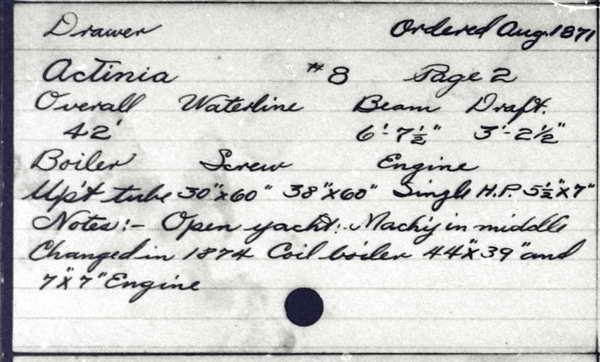 Drawer Ordered Aug. 1871
Actinia #8 Page 2
Overall Waterline Beam Draft.
42' 6'-7½" 3'-2½"
Boiler Screw Engine
Up't tube 30"x60" 38"x60" Single H.P. 5½"x7"
Notes:- Open yacht: Mach'y in middle
Changed in 1874 Coil boiler 44"x39" and
7"x7" Engine